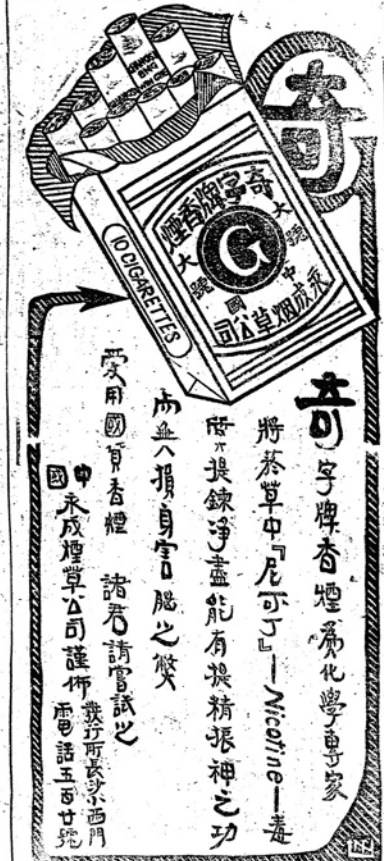 奇
奇字牌香煙
大號
大號
G
中國
永成烟草公司
10 CIGARETTES
奇字牌香煙爲化學專家
將菸草中『尼可丁』—Nicotine—毒
質提鍊淨盡能有提精振神之功
而無損身害腦之弊
愛用國貨香煙 諸君請嘗試之
中國永成煙草公司謹佈
發行所長沙西門
電話五百廿號